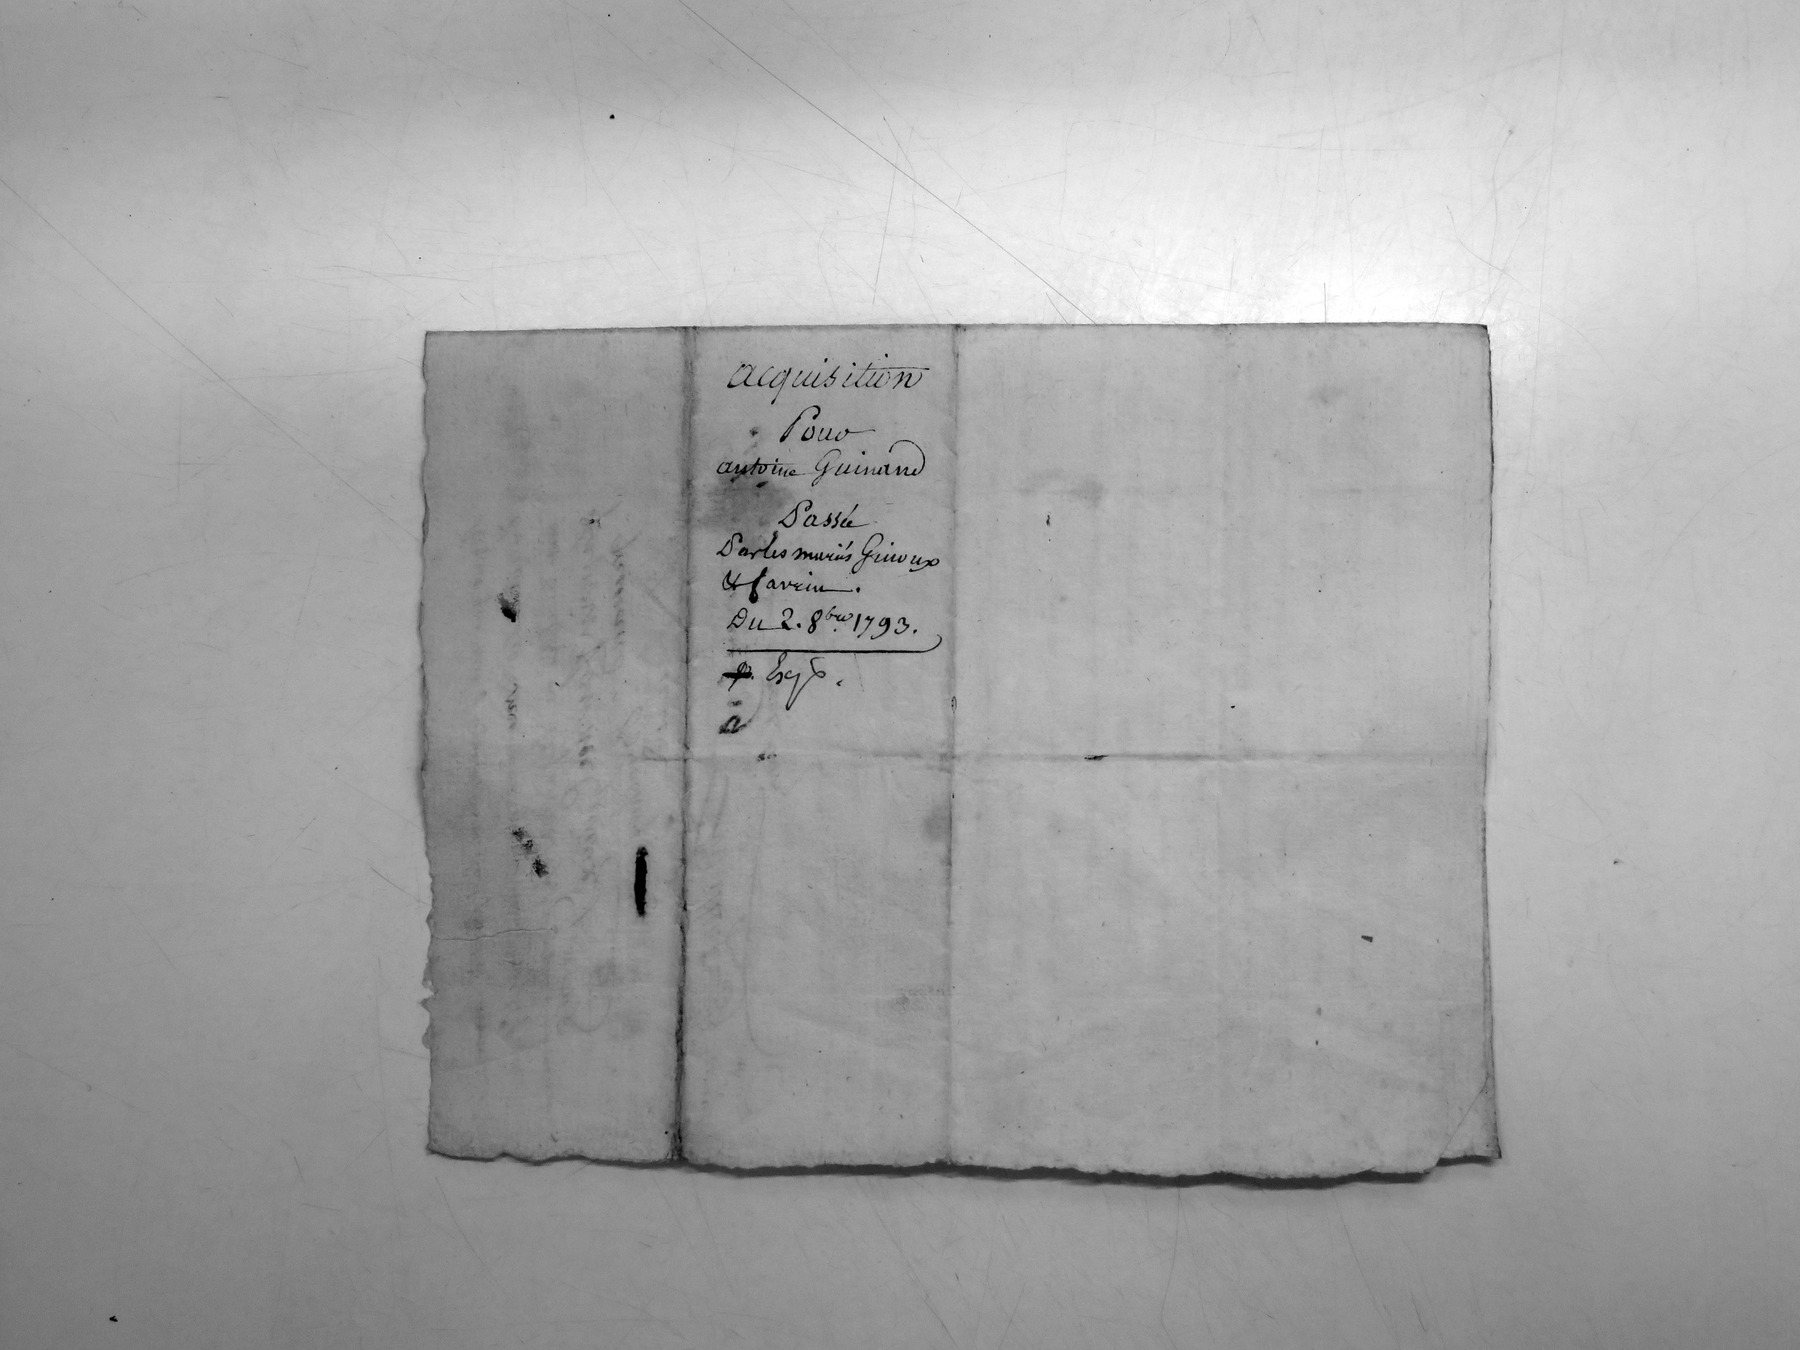 acquisition
Pour
antoine Guinand
Passée
Par les mariés Giroux
& favrin.
Du 2. 8bre 1793.
p. Exp